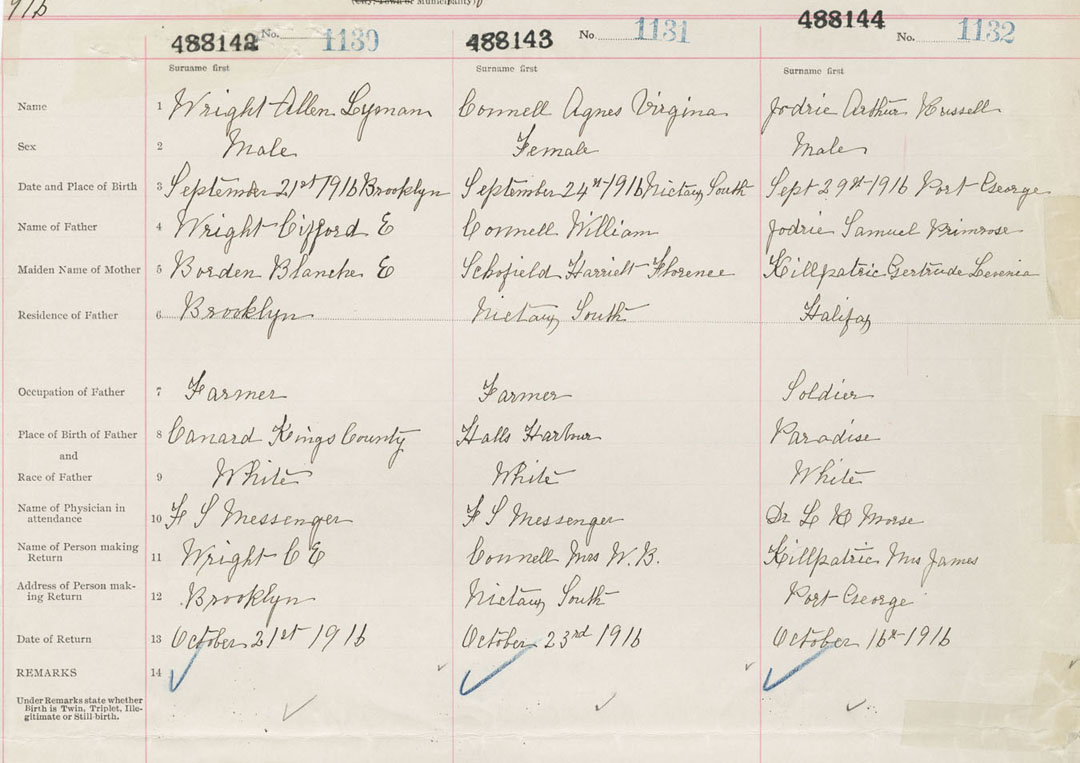 916
(City, Town or Municipality)
488142 No. 1130 488143 No 1131 488144 No. 1132
Surname first Surname first Surname first
Name 1 Wright Allen Lyman Connell Agnes Virgina Jodrie Arthur Russell
Sex 2 Male Female Male
Date and Place of Birth 3 September 21st 1916 Brooklyn September 24th 1916 Nictaux South Sept 29th 1916 Port George
Name of Father 4 Wright Cifford E Connell William Jodrie Samuel Primrose
Maiden Name of Mother 5 Borden Blanche E Schofield Harriett Florence Killpatric Gertrude Levenia
Residence of Father 6 Brooklyn Nictaux South Halifax
Occupation of Father 7 Farmer Farmer Soldier
Place of Birth of Father 8 Canard Kings County Halls Harbour Paradise
and
Race of Father 9 White White White
Name of Physician in
attendance 10 F S Messenger F S Messenger Dr L R Morse
Name of Person making
Return 11 Wright C E Connell Mrs W.B. Killpatric Mrs James
Address of Person mak-
ing Return 12 Brooklyn Nictaux South Port George
Date of Return 13 October 21st 1916 October 23rd 1916 October 16th 1916
REMARKS 14
Under Remarks state whether
Birth is Twin, Triplet, Ille-
gitimate or Still-birth.